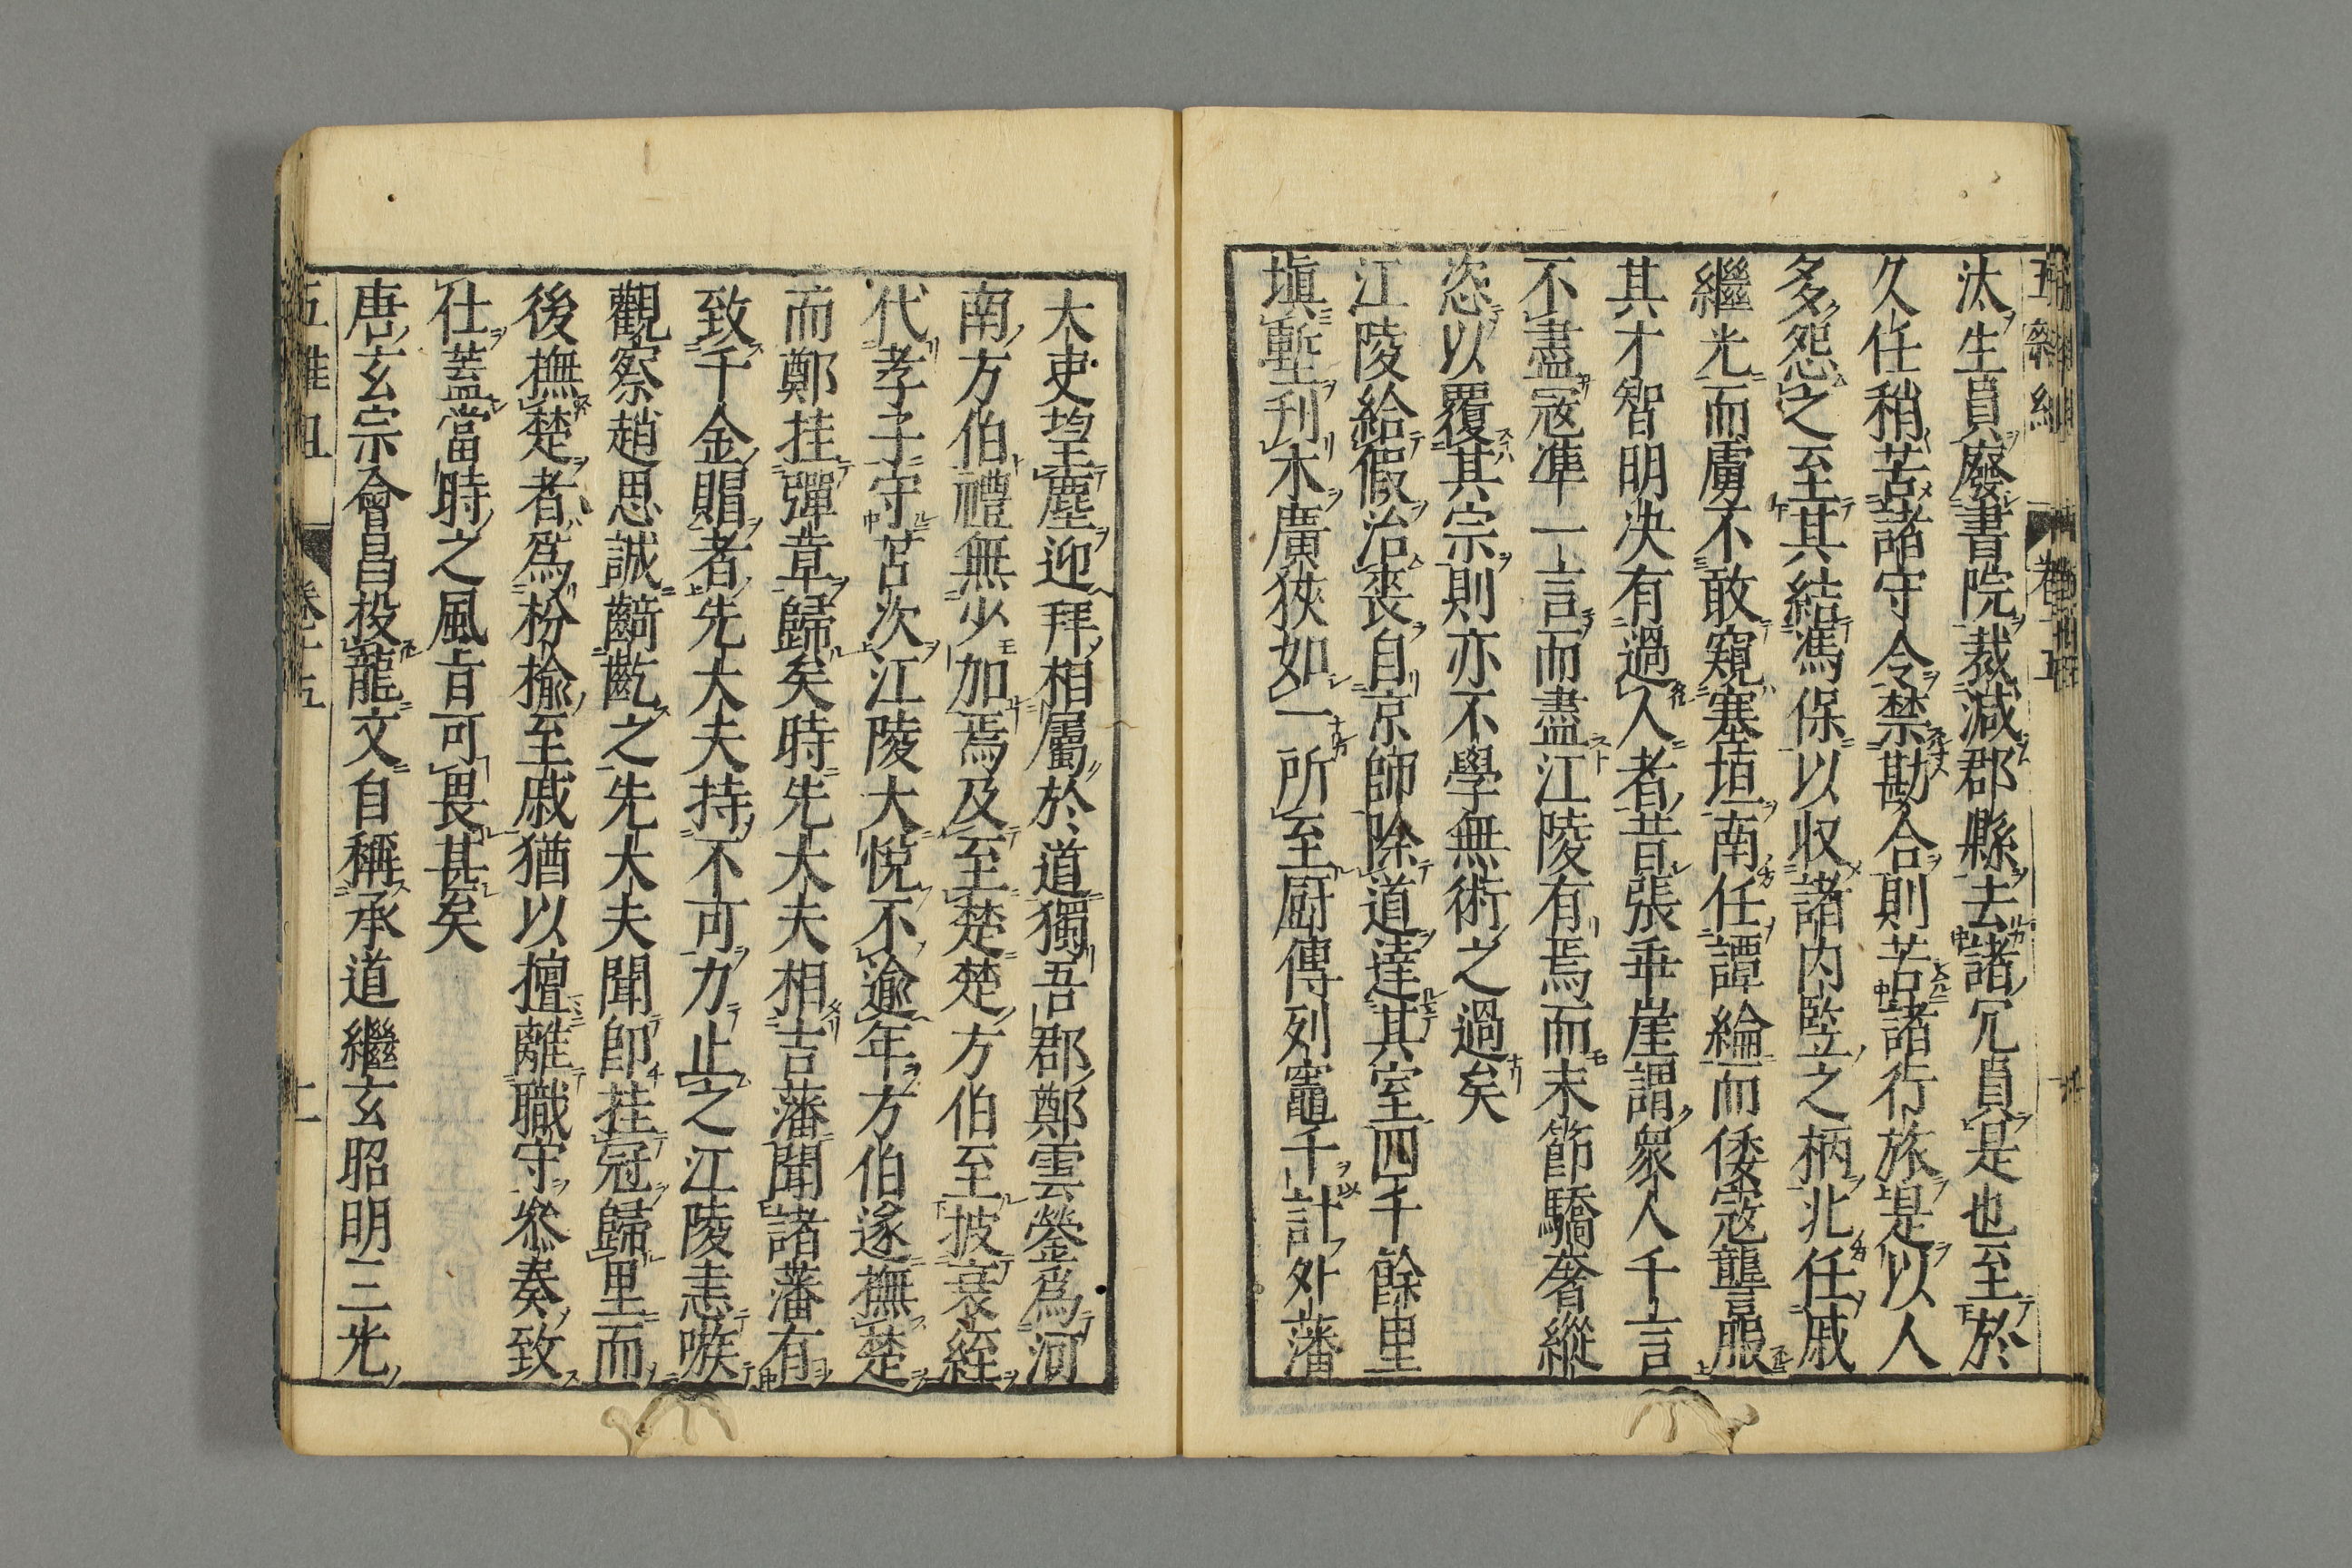 汰生員廢書院裁減郡縣去諸冗員是也至於
久任稍苦諸守令禁勘合則苦諸行旅是以人
多怨之至其結馮保以収諸内監之柄北任戚
繼光而虜不敢窺塞垣南任譚綸而倭寇讋服
其才智明决有過人者昔張乖崖謂衆人千言
不盡冦準一言而盡江陵有焉而末節驕奢縱
恣以覆其宗則亦不學無術之過矣
江陵給假治喪自京師除道達其室四千餘里
塡塹刊木廣狹如一所至厨傳列竈千計外藩
大吏望塵迎拜相屬於道獨吾郡鄭雲鎣爲河
南方伯禮無少加焉及至楚楚方伯至披衰絰
代孝子守苫次江陵大悅不逾年方伯遂撫楚
而鄭挂彈章歸矣時先大夫相吉藩聞諸藩有
致千金賵者先大夫持不可力止之江陵恚嗾
觀察趙思誠齮齕之先大夫聞卽挂冠歸里而
後撫楚者爲枌榆至戚猶以擅離職守叅奏致
仕蓋當時之風旨可畏甚矣
唐玄宗會昌投龍文自稱承道繼玄昭明三光
五雜俎
卷十五